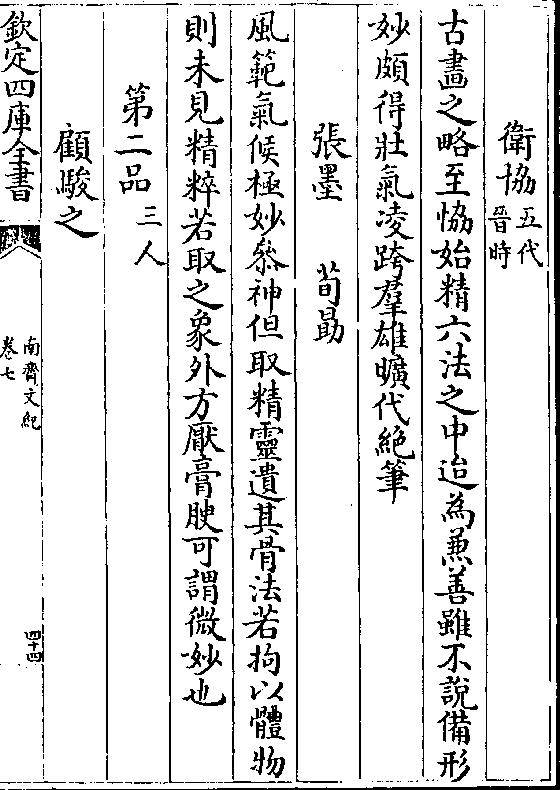 衛協五代晉時
古畫之略至恊始精六法之中迨為兼善雖不說備形
妙頗得壯氣凌跨羣雄曠代絕筆
張墨 荀勗
風範氣候極妙叅神但取精靈遺其骨法若拘以體物
則未見精粹若取之象外方厭膏腴可謂微妙也
第二品三人
顧駿之
欽定四庫全書
南齊文紀
卷七
四十四